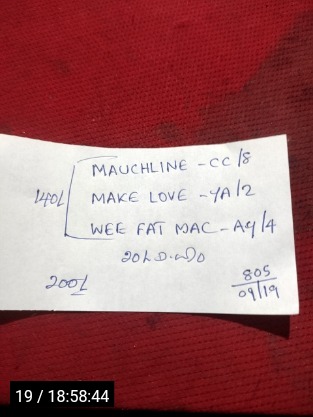 MAUCHLINE - CC/8
140L MAKE LOVE - YA/2
WEE FAT MAC - A4/4
200L
805
09/19
19 / 18:58:44